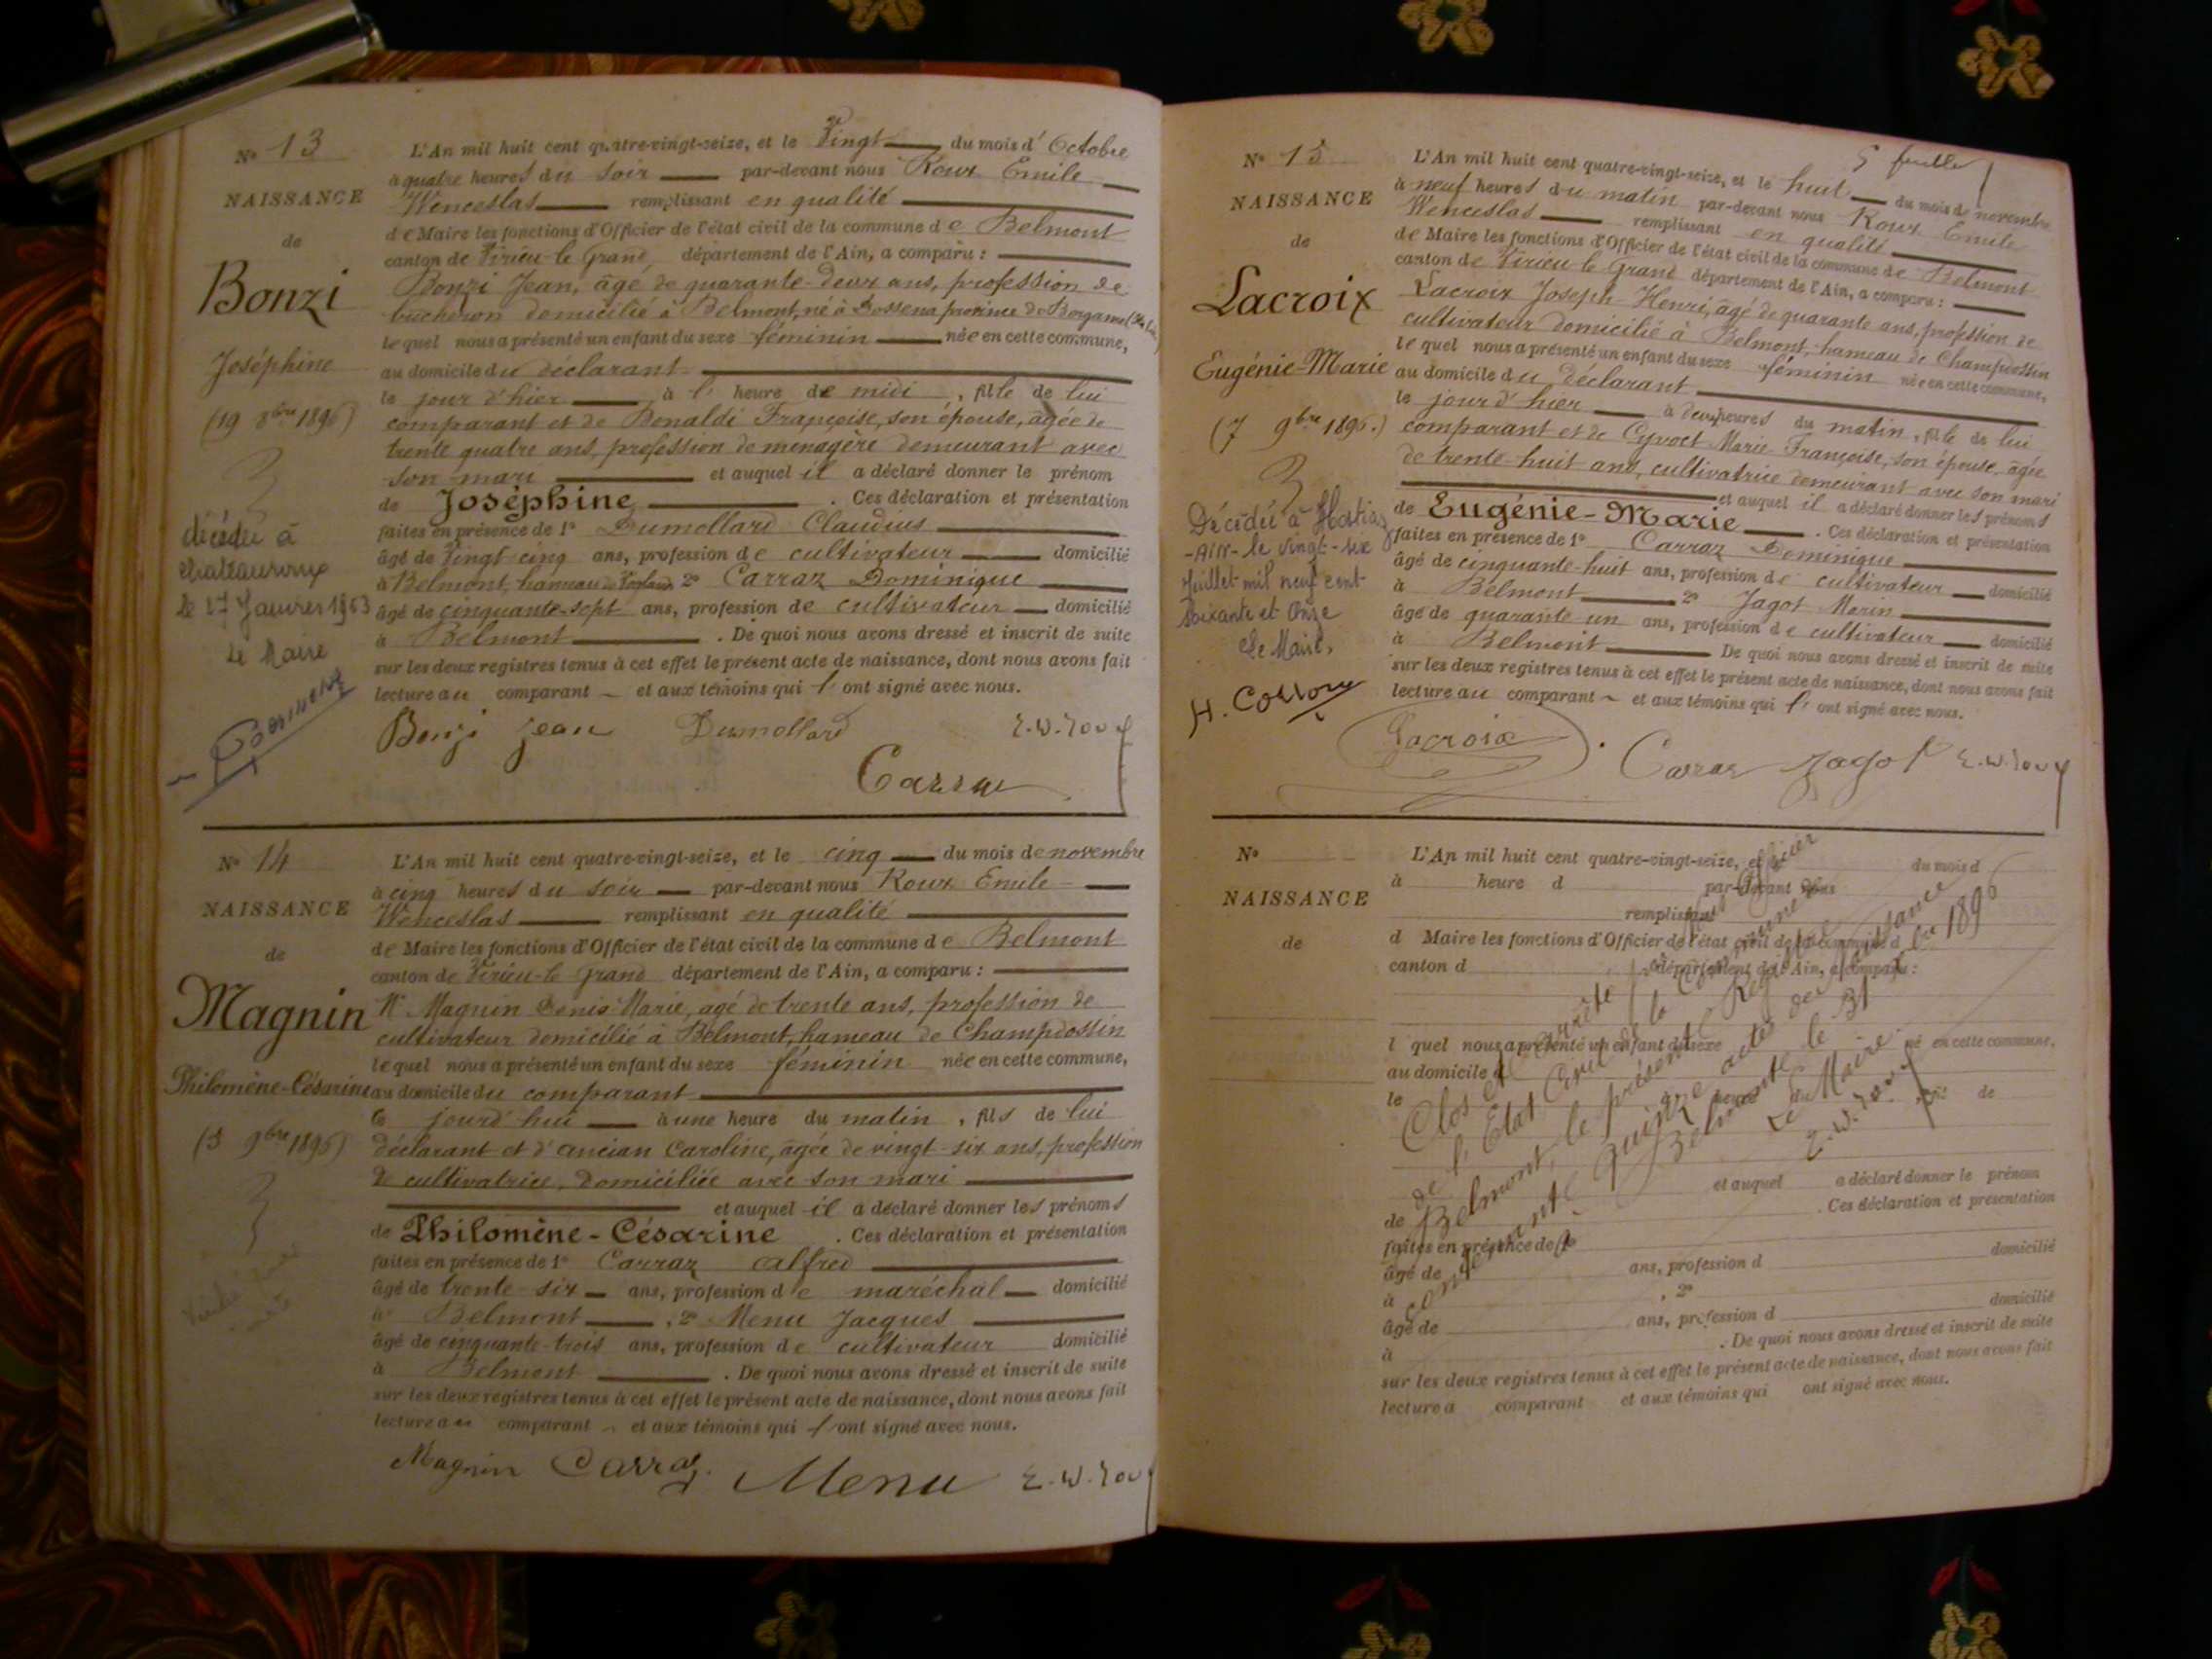 N° 13
NAISSANCE
de
Bonzi
Joséphine
(19 8bre 1896)
décédée à
chateauroux
le 17 Janvier 1963
Le Maire
L'An mil huit cent quatre-vingt-seize, et le vingt du mois d'Octobre
à quatre heures du soir par-devant nous Roux Emile
Wenceslas remplissant en qualité
de Maire les fonctions d'Officier de l'état civil de la commune de Belmont
canton de Virieu-le Grand, département de l'Ain, a comparu :
Bonzi Jean, âgé de quarante-deux ans, profession de
bucheron domicilié à Belmont, né à Dossena province de Bergame
lequel nous a présenté un enfant du sexe féminin née en cette commune,
au domicile du déclarant
le jour d'hier à l' heure de midi, fille de lui
comparant et de Bonaldi Françoise, son épouse, âgée de
trente quatre ans, profession de ménagère demeurant avec
son mari et auquel il a déclaré donner le prénom
de Joséphine. Ces déclaration et présentation
faites en présence de 1° Dumollard Claudius
âgé de vingt-cinq ans, profession de cultivateur domicilié
à Belmont, hameau de 2° Carraz Dominique
âgé de cinquante-sept ans, profession de cultivateur domicilié
à Belmont. De quoi nous avons dressé et inscrit de suite
sur les deux registres tenus à cet effet le présent acte de naissance, dont nous avons fait
lecture au comparant et aux témoins qui l'ont signé avec nous.
Bonzi Jean Dumollard E.W. Roux
Carraz
N° 14
NAISSANCE
de
Magnin
Philomène-Césarine
(5 9bre 1896)
L'An mil huit cent quatre-vingt-seize, et le cinq du mois de novembre
à cinq heures du soir par-devant nous Roux Emile
Wenceslas remplissant en qualité
de Maire les fonctions d'Officier de l'état civil de la commune de Belmont
canton de Virieu-le Grand département de l'Ain, a comparu :
Mr Magnin Denis Marie, agé de trente ans, profession de
cultivateur domicilié à Belmont, hameau de Champdossin
lequel nous a présenté un enfant du sexe féminin née en cette commune,
au domicile du comparant
le jourd'hui à une heure du matin, fils de lui
déclarant et d'Ancian Caroline, âgée de vingt-six ans, profession
de cultivatrice, domiciliée avec son mari
et auquel il a déclaré donner les prénoms
de Philomène-Césarine. Ces déclaration et présentation
faites en présence de 1° Carraz Alfred
âgé de trente-six ans, profession de maréchal domicilié
à Belmont, 2° Menu Jacques
âgé de cinquante-trois ans, profession de cultivateur domicilié
à Belmont. De quoi nous avons dressé et inscrit de suite
sur les deux registres tenus à cet effet le présent acte de naissance, dont nous avons fait
lecture au comparant et aux témoins qui l'ont signé avec nous.
Magnin Carraz Menu E.W. Roux
5 feuille
N° 15
NAISSANCE
de
Lacroix
Eugénie-Marie
(7 9bre 1896.)
Décédée à
-Ain- le vingt-six
Juillet mil neuf cent
Soixante et Onze
Le Maire,
L'An mil huit cent quatre-vingt-seize, et le huit du mois de novembre
à neuf heures du matin par-devant nous Roux Emile
Wenceslas remplissant en qualité
de Maire les fonctions d'Officier de l'état civil de la commune de Belmont
canton de Virieu-le Grand département de l'Ain, a comparu :
Lacroix Joseph-Henri, âgé de quarante ans, profession de
cultivateur domicilié à Belmont, hameau de Champdossin
lequel nous a présenté un enfant du sexe féminin née en cette commune,
au domicile du déclarant
le jour d'hier à deux heures du matin, fille de lui
comparant et de Cyvoct Marie-Françoise, son épouse, âgée
de trente-huit ans, cultivatrice demeurant avec son mari
et auquel il a déclaré donner les prénoms
de Eugénie-Marie. Ces déclaration et présentation
faites en présence de 1° Carraz Dominique
âgé de cinquante-huit ans, profession de cultivateur domicilié
à Belmont 2° Jagot Marin
âgé de quarante un ans, profession de cultivateur domicilié
à Belmont De quoi nous avons dressé et inscrit de suite
sur les deux registres tenus à cet effet le présent acte de naissance, dont nous avons fait
lecture au comparant et aux témoins qui l'ont signé avec nous.
Lacroix Carraz Jagot E.W. Roux
N°
NAISSANCE
de
L'An mil huit cent quatre-vingt-seize, et le du mois d
à heure d par-devant nous
remplissant
d Maire les fonctions d'Officier de l'état civil de la commune d
canton d département de l'Ain, a comparu :
l quel nous a présenté un enfant du sexe né en cette commune,
au domicile d
le à heure du, fil de
et auquel a déclaré donner le prénom
de . Ces déclaration et présentation
faites en présence de 1°
âgé de ans, profession d domicilié
à , 2°
âgé de ans, profession d domicilié
à . De quoi nous avons dressé et inscrit de suite
sur les deux registres tenus à cet effet le présent acte de naissance, dont nous avons fait
lecture a comparant et aux témoins qui ont signé avec nous.
Clos et arrêté par nous Officier
de l'Etat Civil de la Commune de
Belmont, le présent Registre
contenant quinze actes de naissance
Belmont le 31 Xbre 1896
Le Maire.
E.W. Roux